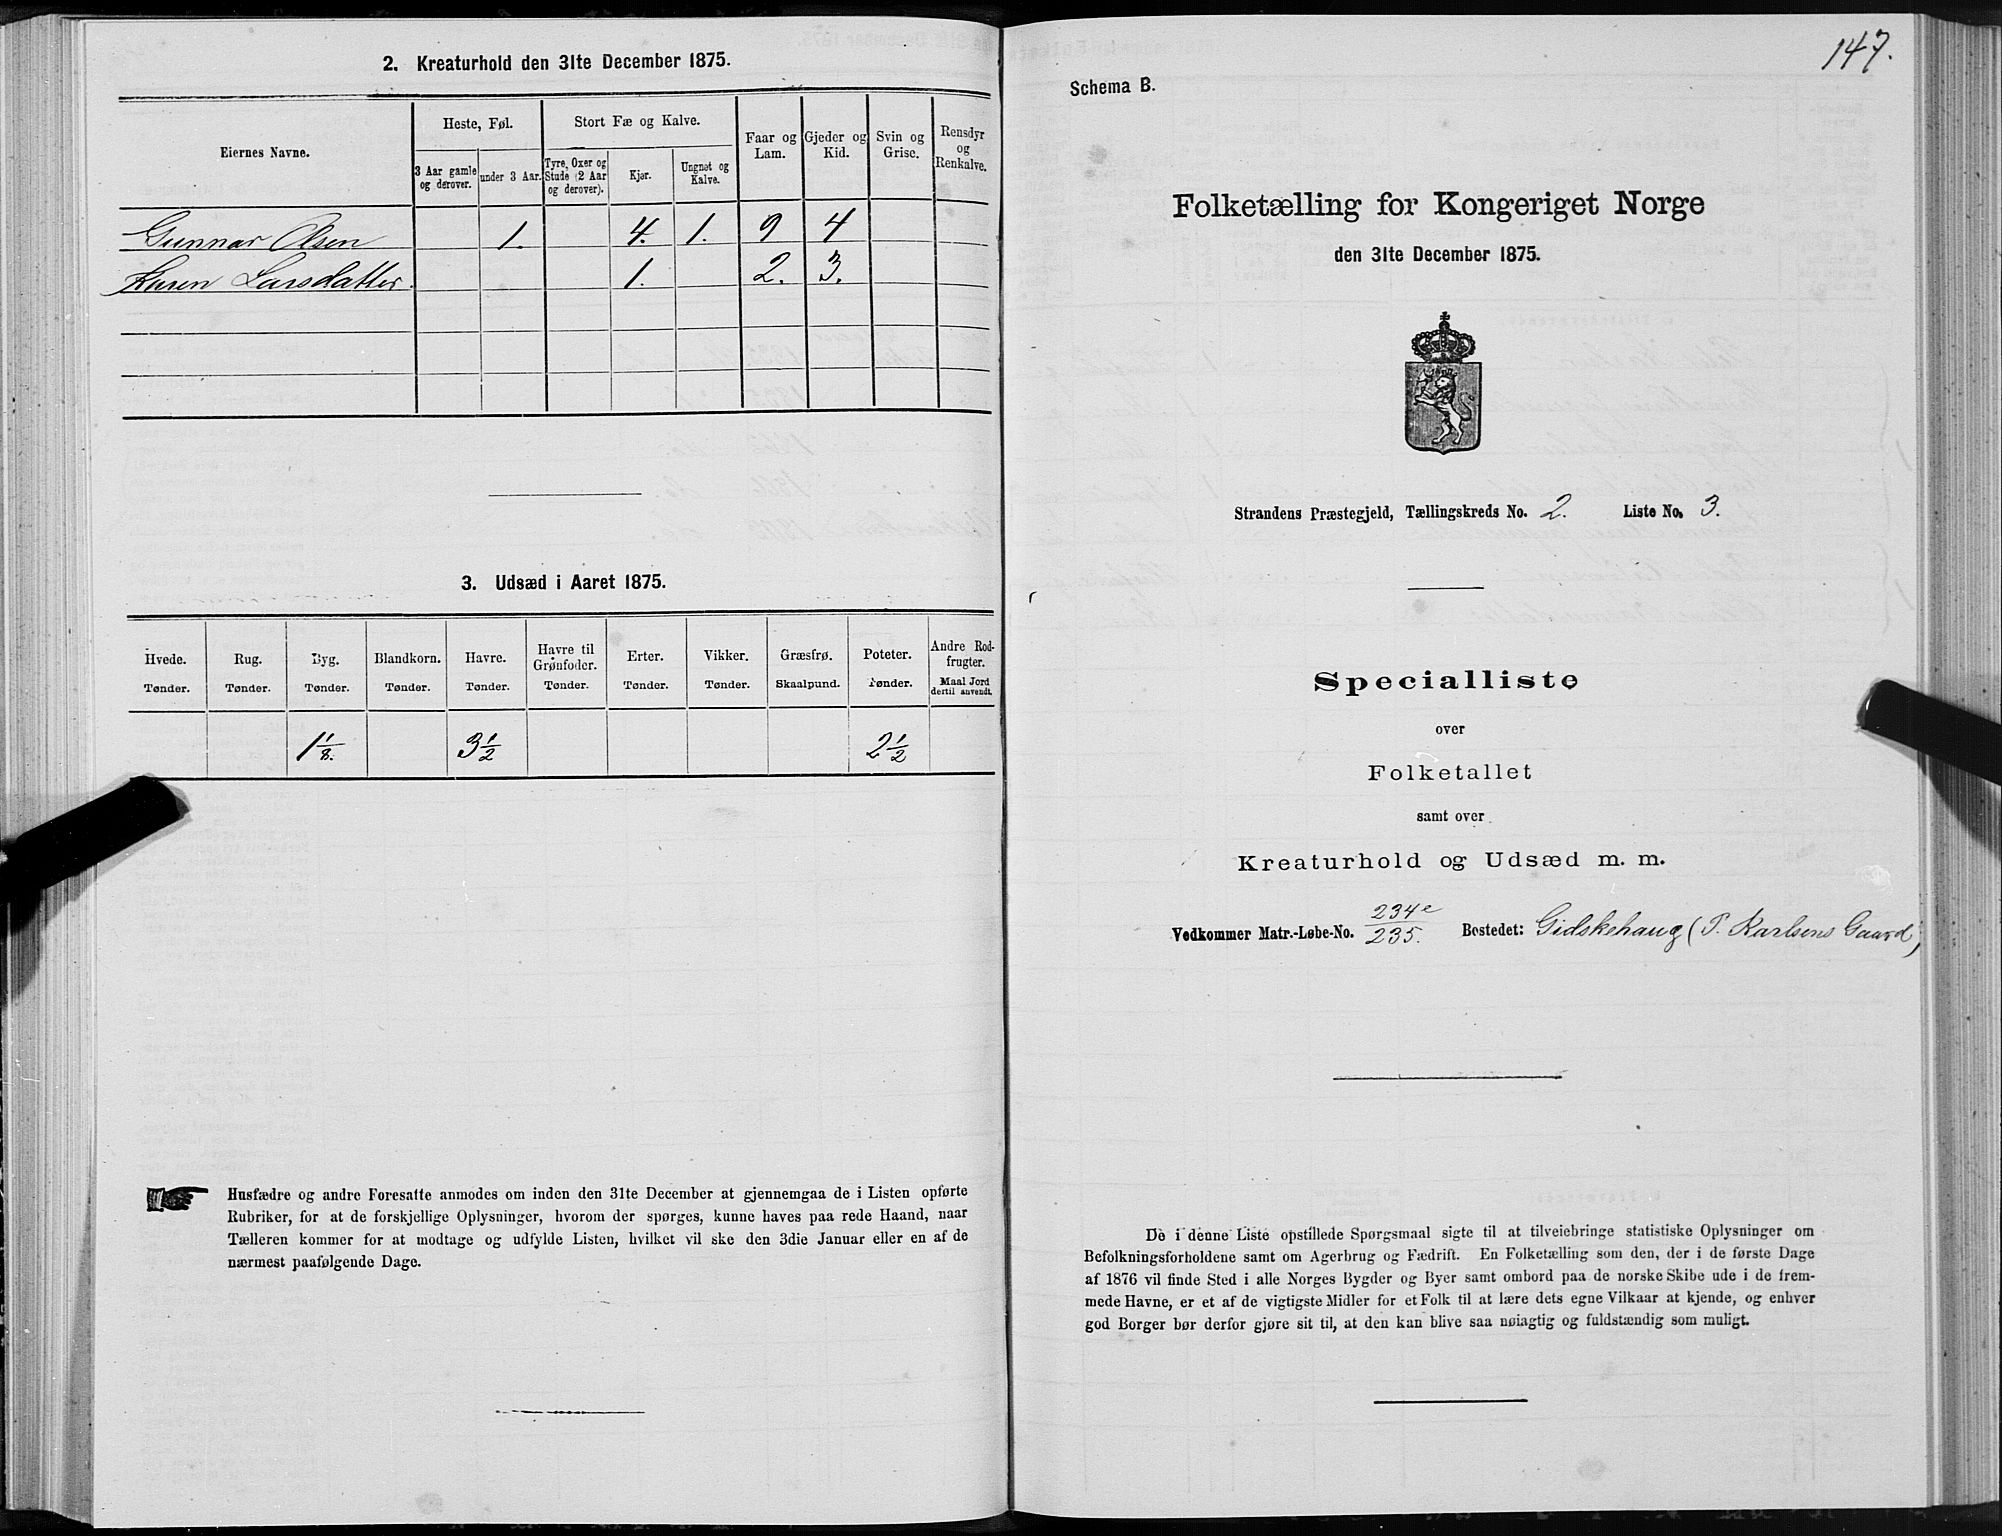 2. Kreaturhold den 31te December 1875.
Eiernes Navne.
Heste, Føl.
Stort Fæ og Kalve.
Faar og Lam.
Gjeder og Kid.
Svin og Grise.
Rensdyr og Renkalve.
3 Aar gamle og derover.
under 3 Aar.
Tyre, Oxer og Stude (2 Aar og derover).
Kjør.
Ungnøt og Kalve.
Gunnar Olsen 1. 4. 1. 9 4
Karen Larsdatter. 1. 2. 3.
3. Udsæd i Aaret 1875.
Hvede. Rug. Byg. Blandkorn. Havre. Havre til Grønfoder. Erter. Vikker. Græsfrø. Poteter. Andre Rodfrugter.
Tønder. Tønder. Tønder. Tønder. Tønder. Tønder. Tønder. Tønder. Skaalpund. Tønder. Maal Jord dertil anvendt.
1 1/8. 3 1/2 2 1/2
Husfædre og andre Foresatte anmodes om inden den 31te December at gjennemgaa de i Listen opførte
Rubriker, for at de forskjellige Oplysninger, hvorom der spørges, kunne haves paa rede Haand, naar
Tælleren kommer for at modtage og udfylde Listen, hvilket vil ske den 3die Januar eller en af de
nærmest paafølgende Dage.
147.
Schema B.
Folketælling for Kongeriget Norge
den 31te December 1875.
Strandens Præstegjeld, Tællingskreds No. 2. Liste No. 3.
Specialliste
over
Folketallet
samt over
Kreaturhold og Udsæd m. m.
Vedkommer Matr.-Løbe-No. 234e/235. Bostedet: Gidskehaug (P. Karlsens Gaard)
De i denne Liste opstillede Spørgsmaal sigte til at tilveiebringe statistiske Oplysninger om
Befolkningsforholdene samt om Agerbrug og Fædrift. En Folketælling som den, der i de første Dage
af 1876 vil finde Sted i alle Norges Bygder og Byer samt ombord paa de norske Skibe ude i de frem-
mede Havne, er et af de vigtigste Midler for et Folk til at lære dets egne Vilkaar at kjende, og enhver
god Borger bør derfor gjøre sit til, at den kan blive saa nøiagtig og fuldstændig som muligt.